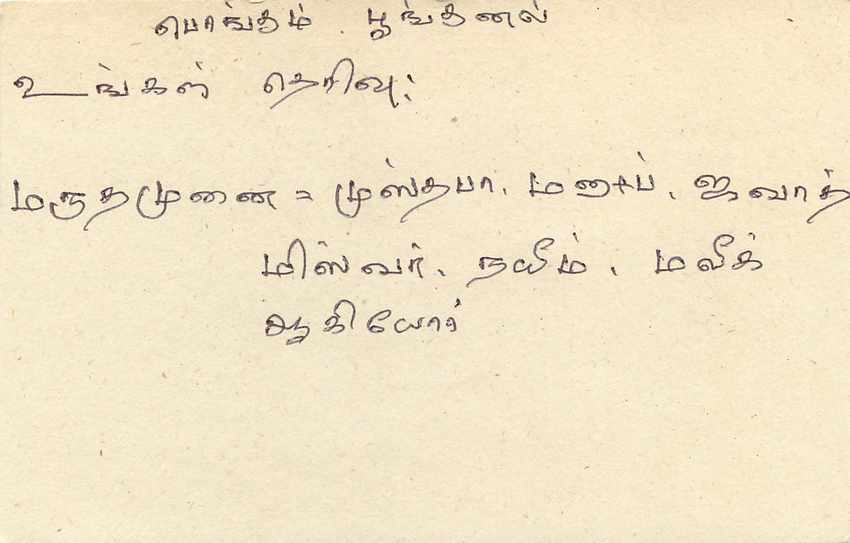 பொங்கும் பூங்தனல்
உங்கள் தெரிவு:
மருதமுனை = முஸ்தபா, ஜவாத்
மிஸ்வர், நயீம், மலீக்
ஆகியோர்